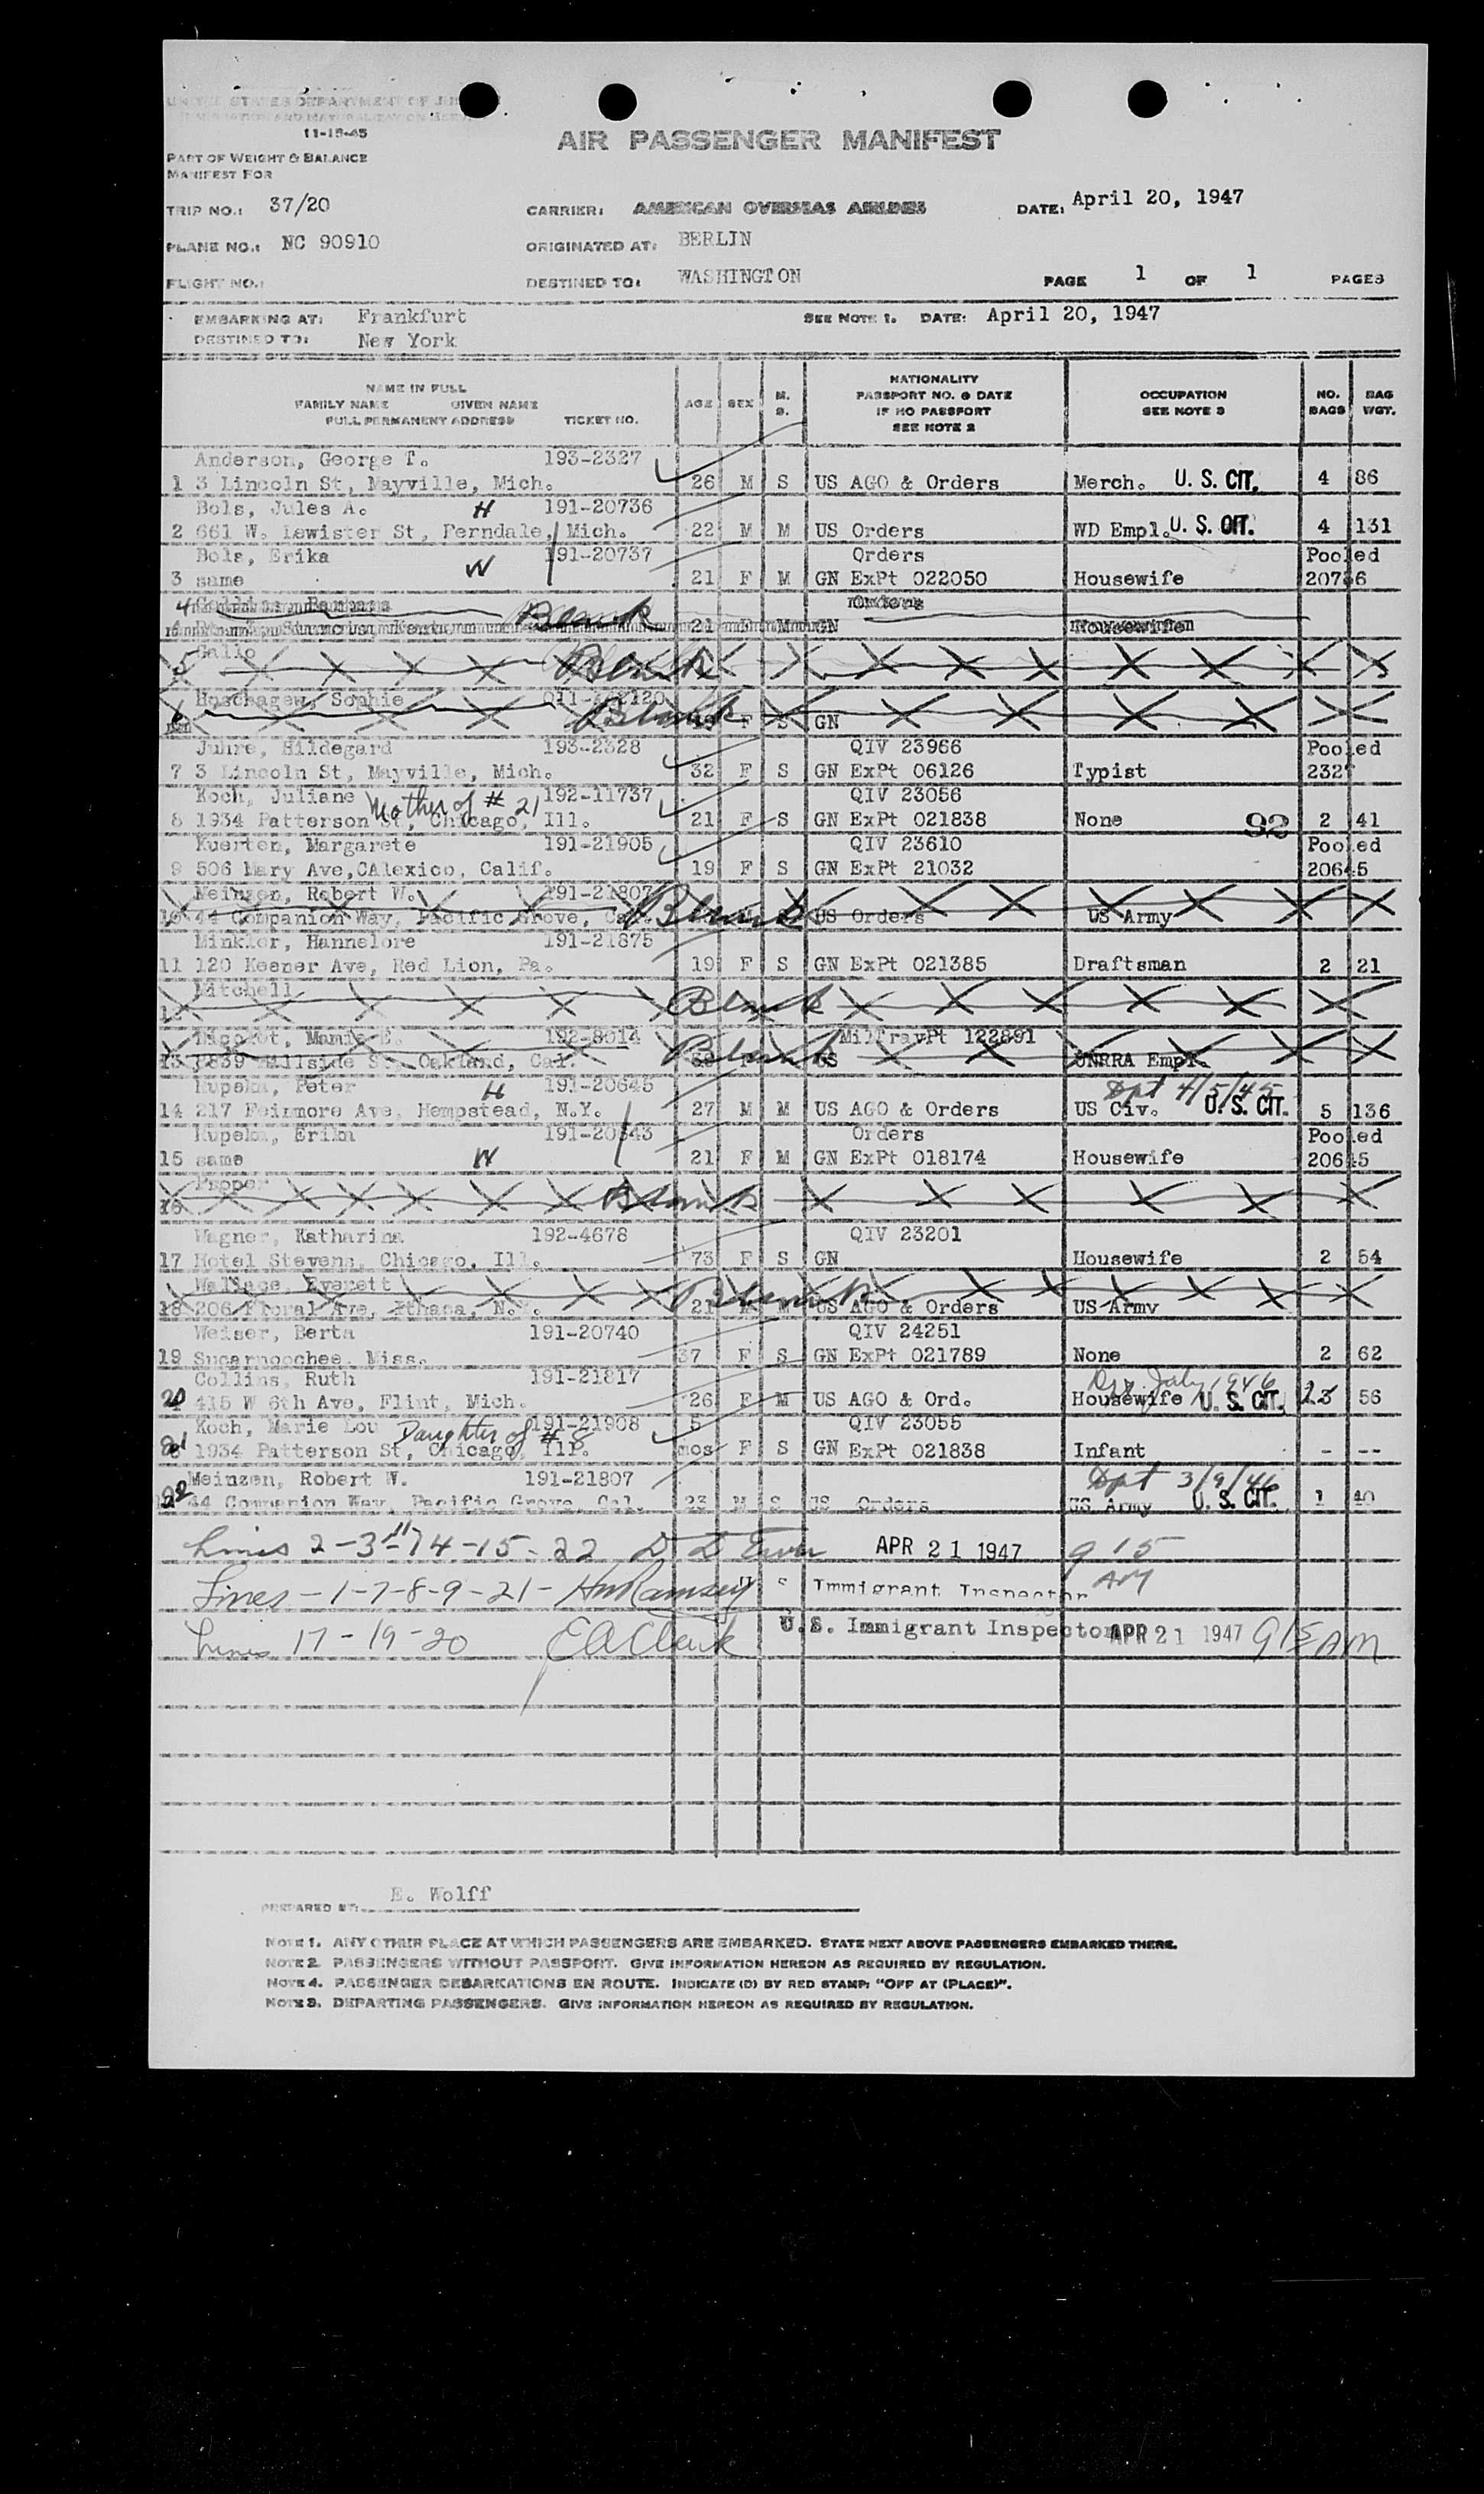 UNITED STATES DEPARTMENT OF
11-15-45
AIR PASSENGER MANIFEST
PART OF WEIGHT & BALANCE
MANIFEST FOR
TRIP NO.: 37/20 CARRIER: AMERICAN OVERSEAS AIRLINES DATE: April 20, 1947
PLANE NO.: NC 90910 ORIGINATED AT: BERLIN
FLIGHT NO.: DESTINED TO: WASHINGTON PAGE 1 OF 1 PAGES
EMBARKING AT: Frankfurt SEE NOTE 1. DATE: April 20, 1947
DESTINED TO: New York
NAME IN FULL
FAMILY NAME GIVEN NAME
FULL PERMANENT ADDRESS TICKET NO.
AGE SEX M. S.
NATIONALITY
PASSPORT NO. & DATE
IF NO PASSPORT
SEE NOTE 2
OCCUPATION
SEE NOTE 3
NO. BAGS
BAG WGT.
Anderson, George T. 193-2327
1 3 Lincoln St, Mayville, Mich. 26 M S US AGO & Orders Merch. U. S. CIT. 4 86
Bols, Jules A. H 191-20736
2 661 W. Lewister St, Ferndale, Mich. 22 M M US Orders WD Empl. U. S. CIT. 4 131
Bols, Erika W 191-20737 Orders Pooled
3 same 21 F M GN ExPt 022050 Housewife 20736
4 Blank Orders
21 F M GN Housewife
5 Gallo Blank
Hoschagew, Sophie
6 Blank F S GN
Juhre, Hildegard 193-2328 QIV 23966 Pooled
7 3 Lincoln St, Mayville, Mich. 32 F S GN ExPt 06126 Typist 232
Koch, Juliane Mother of # 21 192-11737 QIV 23056
8 1934 Patterson St, Chicago, Ill. 21 F S GN ExPt 021838 None 92 2 41
Kuerten, Margarete 191-21905 QIV 23610 Pooled
9 506 Mary Ave, CAlexico, Calif. 19 F S GN ExPt 21032 20645
Meinzen, Robert W. 191-21807
10 44 Companion Way, Pacific Grove, Cal. Blank US Orders US Army
Minkler, Hannelore 191-21875
11 120 Keener Ave, Red Lion, Pa. 19 F S GN ExPt 021385 Draftsman 2 21
Mitchell Blank
192-8014 MilTravPt 122891
13 2839 Hillside St, Oakland, Cal. Blank US UNRRA Empl.
Kupska, Peter H 191-20645 Dpt 4/5/45
14 217 Feinmore Ave, Hempstead, N.Y. 27 M M US AGO & Orders US Civ. U. S. CIT. 5 136
Kupska, Erika 191-20643 Orders Pooled
15 same W 21 F M GN ExPt 018174 Housewife 20645
Proper
16 Blank
Wagner, Katharina 192-4678 QIV 23201
17 Hotel Stevens, Chicago, Ill. 73 F S GN Housewife 2 54
Wallace, Everett
18 206 Floral Ave, Ithaca, N.Y. 21 M M Blank US AGO & Orders US Army
Weiser, Berta 191-20740 QIV 24251
19 Sucarnoochee, Miss. 37 F S GN ExPt 021789 None 2 62
Collins, Ruth 191-21817 Dep. July 1946
20 415 W 6th Ave, Flint, Mich. 26 F M US AGO & Ord. Housewife U. S. CIT. 56
Koch, Marie Lou Daughter of # 8 191-21908 5 QIV 23055
21 1934 Patterson St, Chicago, Ill. mos F S GN ExPt 021838 Infant - --
Meinzen, Robert W. 191-21807 Dpt 3/9/46
22 44 Companion Way, Pacific Grove, Cal. 23 M S US Orders US Army U. S. CIT. 1 40
Lines 2-3-11-14-15-22 APR 21 1947 9 15
Lines-1-7-8-9-21- HM Ramsey U S Immigrant Inspector AM
Lines 17-19-20 E A Clark U.S. Immigrant Inspector APR 21 1947 915 AM
PREPARED BY: E. Wolff
NOTE 1. ANY OTHER PLACE AT WHICH PASSENGERS ARE EMBARKED. STATE NEXT ABOVE PASSENGERS EMBARKED THERE.
NOTE 2. PASSENGERS WITHOUT PASSPORT. GIVE INFORMATION HEREON AS REQUIRED BY REGULATION.
NOTE 4. PASSENGER DEBARKATIONS EN ROUTE. INDICATE (D) BY RED STAMP: "OFF AT (PLACE)".
NOTE 3. DEPARTING PASSENGERS. GIVE INFORMATION HEREON AS REQUIRED BY REGULATION.